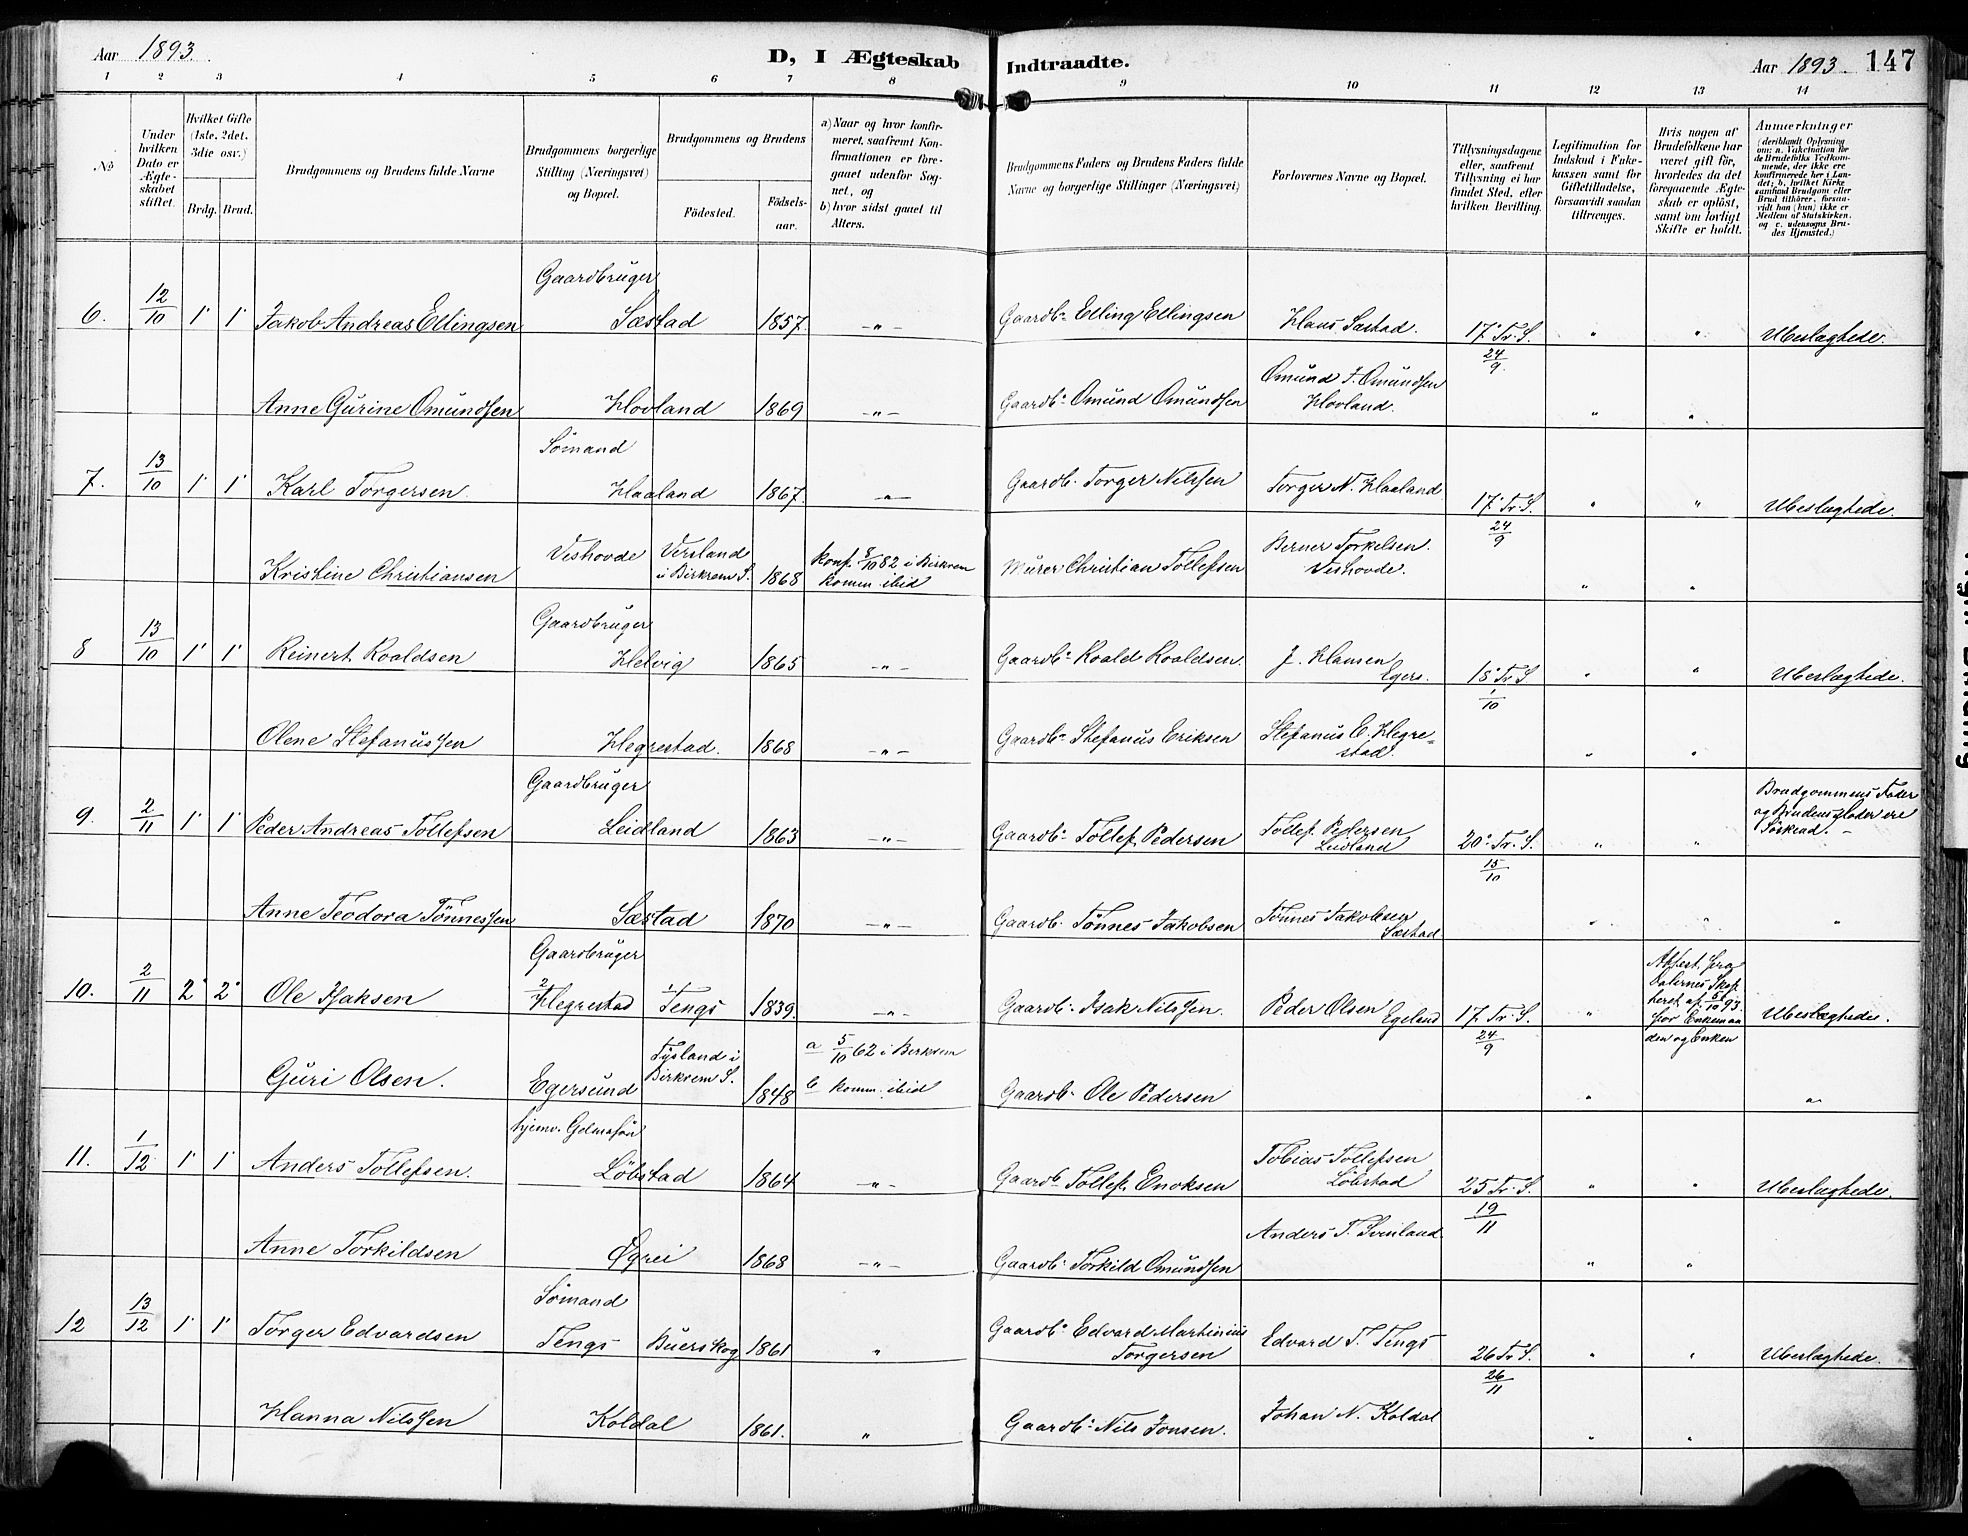 Aar 1893.
D, I Ægteskab Indtraadte.
Aar 1893. 147
1 2 3 4 5 6 7 8 9 10 11 12 13 14
No
Under hvilken Dato er Ægteskabet stiftet.
Hvilket Gifte (1ste, 2det, 3die osv.)
Brdg. Brud.
Brudgommens og Brudens fulde Navne
Brudgommens borgerlige Stilling (Næringsvei) og Bopæl.
Brudgommens og Brudens
Fødested. Fødselsaar.
a) Naar og hvor konfirmeret, saafremt Konfirmationen er foregaaet udenfor Sognet, og
b) hvor sidst gaaet til Alters.
Brudgommens Faders og Brudens Faders fulde Navne og borgerlige Stillinger (Næringsvei)
Forlovernes Navne og Bopæl.
Tillysningsdagene eller, saafremt Tillysning ei har fundet Sted, efter hvilken Bevilling.
Legitimation for Indskud i Enkekassen samt for Giftetilladelse, forsaavidt saadan tiltrænges.
Hvis nogen af Brudefolkene har været gift før, hvorledes da det foregaaende Ægteskab er opløst, samt om lovligt Skifte er holdt.
Anmærkninger
(deriblandt Oplysning om: a. Vakcination for de Brudefolks Vedkommende, der ikke ere konfirmerede her i Landet; b. hvilket Kirkesamfund Brudgom eller Brud tilhører, forsaavidt han (hun) ikke er Medlem af Statskirken, og c. udensogns Brudes Hjemsted.)
Gaardbruger
6. 12/10 1' 1' Jakob Andreas Ellingsen Sæstad 1857. -"- Gaardb. Elling Ellingsen Hans Sæstad. 17. Tr. S. 24/9 " " Ubeslægtede.
Anne Gurine Omundsen Hovland 1869 -"- Gaardb. Omund Omundsen Omund T. Omundsen Hovland. " "
Sømand
7. 13/10 1' 1' Karl Torgersen Haaland 1867. -"- Gaardb. Torger Nilssen Torger N. Haaland 17. Tr. S. 24/9 " " Ubeslægtede.
Kristine Christiansen Veshovde Versland i Birkrem S. 1868 konf. 8/10 82 i Birkrem komm. ibid Murer Christian Tollefsen Berner Torkelsen. Veshovde. " "
Gaardbruger
8 13/10 1' 1' Reinert Roaldsen Helvig 1865 -"- Gaardb. Roald Roaldsen. J. Hansen Egers. 18. Tr. S. 1/10 " " Ubeslægtede.
Olene Stefanussen Hegrestad. 1868 -"- Gaardb. Stefanus Eriksen Stefanus E. Hegrestad. " "
Gaardbruger
9. 2/11 1' 1' Peder Andreas Tollefsen Leidland 1863 -"- Gaardb. Tollef Pedersen Tollef Pedersen Leidland 20. Tr. S. 15/10 " " Brudgommens Fader og Brudens Moder ere Søskend.
Anne Teodora Tönnessen Sæstad 1870 -"- Gaardb. Tönnes Jakobsen Tönnes Jakobsen Sæstad " " "
Gaardbruger
10. 2/11 2' 2' Ole Isaksen 2/ Hegrestad 1/ Tengs 1839. -"- Gaardb. Isak Nilssen. Peder Olsen Egeland 17. Tr. S. 24/9 " Attest fra Dalernes Skifteret af 5/10 93 for Enkemanden og Enken Ubeslægtede.
Guri Olsen. Egersund Tysland i Birkrem S. 1848 a 5/10 62 i Birkrem b komm. ibid Gaardb. Ole Pedersen " "
hjemv.
11. 1/12 1' 1' Anders Tollefsen. Løbstad 1864 -"- Gaardb. Tollef Enoksen Tobias Tollefsen Løbstad 25 Tr. S. 19/11 " " Ubeslægtede.
Anne Torkildsen Øgrei 1868 -"- Gaardb. Torkild Omundsen Anders T. Svinland " "
Sømand
12 13/12 1' 1' Torger Edvardsen Tengs Buerskog 1861 " Gaardb. Edvard Martinius Torgersen Edvard T. Tengs 26 Tr. S. 26/11 " " Ubeslægtede.
Hanna Nilssen Koldal 1861. " Gaardb. Nils Jonsen. Johan N. Koldal " "